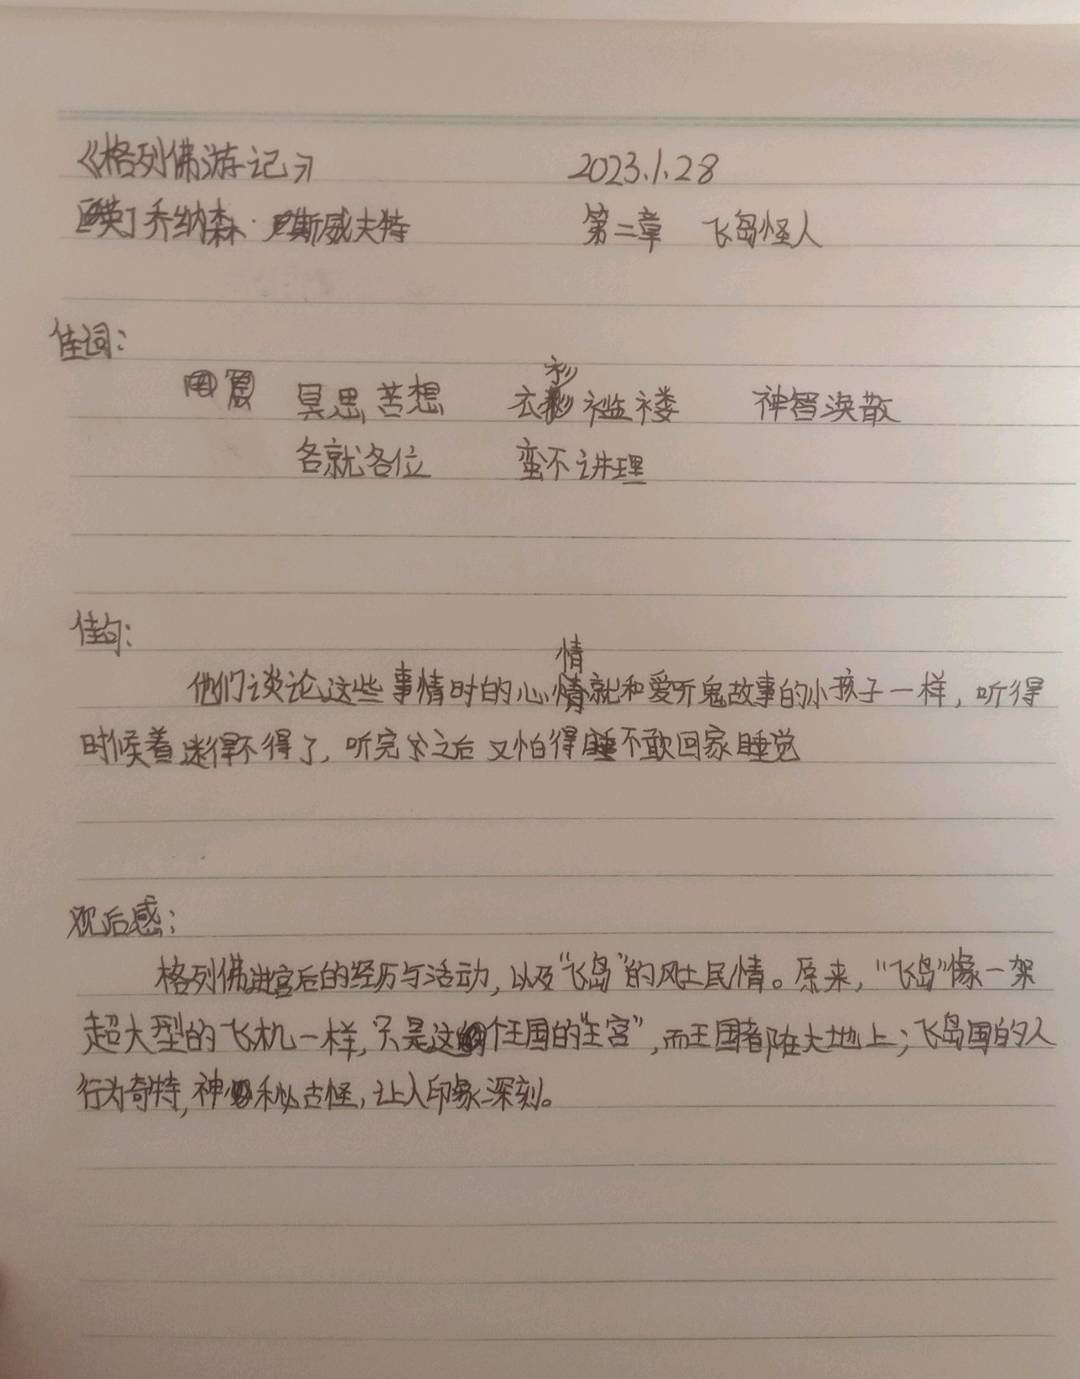 《格列佛游记》 2023.1.28
[英]乔纳森·斯威夫特 第二章 飞岛怪人
佳词：
冥思苦想 衣衫褴褛 神智涣散
各就各位 蛮不讲理
佳句：
他们谈论这些事情时的心情就和爱听鬼故事的小孩子一样，听得
时候着迷得不得了，听完之后又怕得不敢回家睡觉
观后感：
格列佛进宫后的经历与活动，以及“飞岛”的风土民情。原来，“飞岛”像一架
超大型的飞机一样，只是这个王国的“王宫”，而王国都在大地上；飞岛国的人
行为奇特，神秘古怪，让人印象深刻。